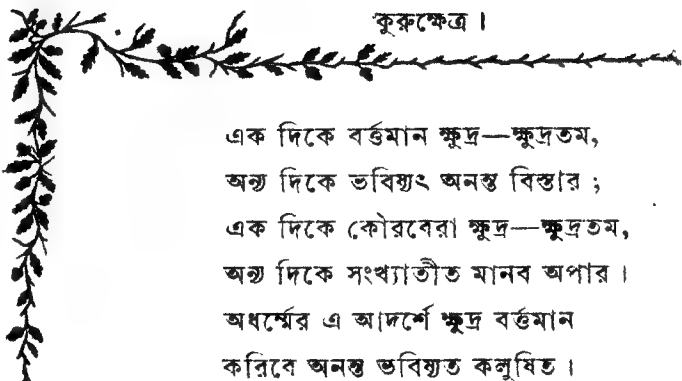 কুরুক্ষেত্র।
এক দিকে বর্ত্তমান ক্ষুদ্র—ক্ষুদ্রতম,
অন্য দিকে ভবিষ্যৎ অনন্ত বিস্তার ;
এক দিকে কৌরবেরা ক্ষুদ্র—ক্ষুদ্রতম,
অন্য দিকে সংখ্যাতীত মানব অপার।
অধর্ম্মের এ আদর্শে ক্ষুদ্র বর্ত্তমান
করিবে অনন্ত ভবিষ্যত কলুষিত।